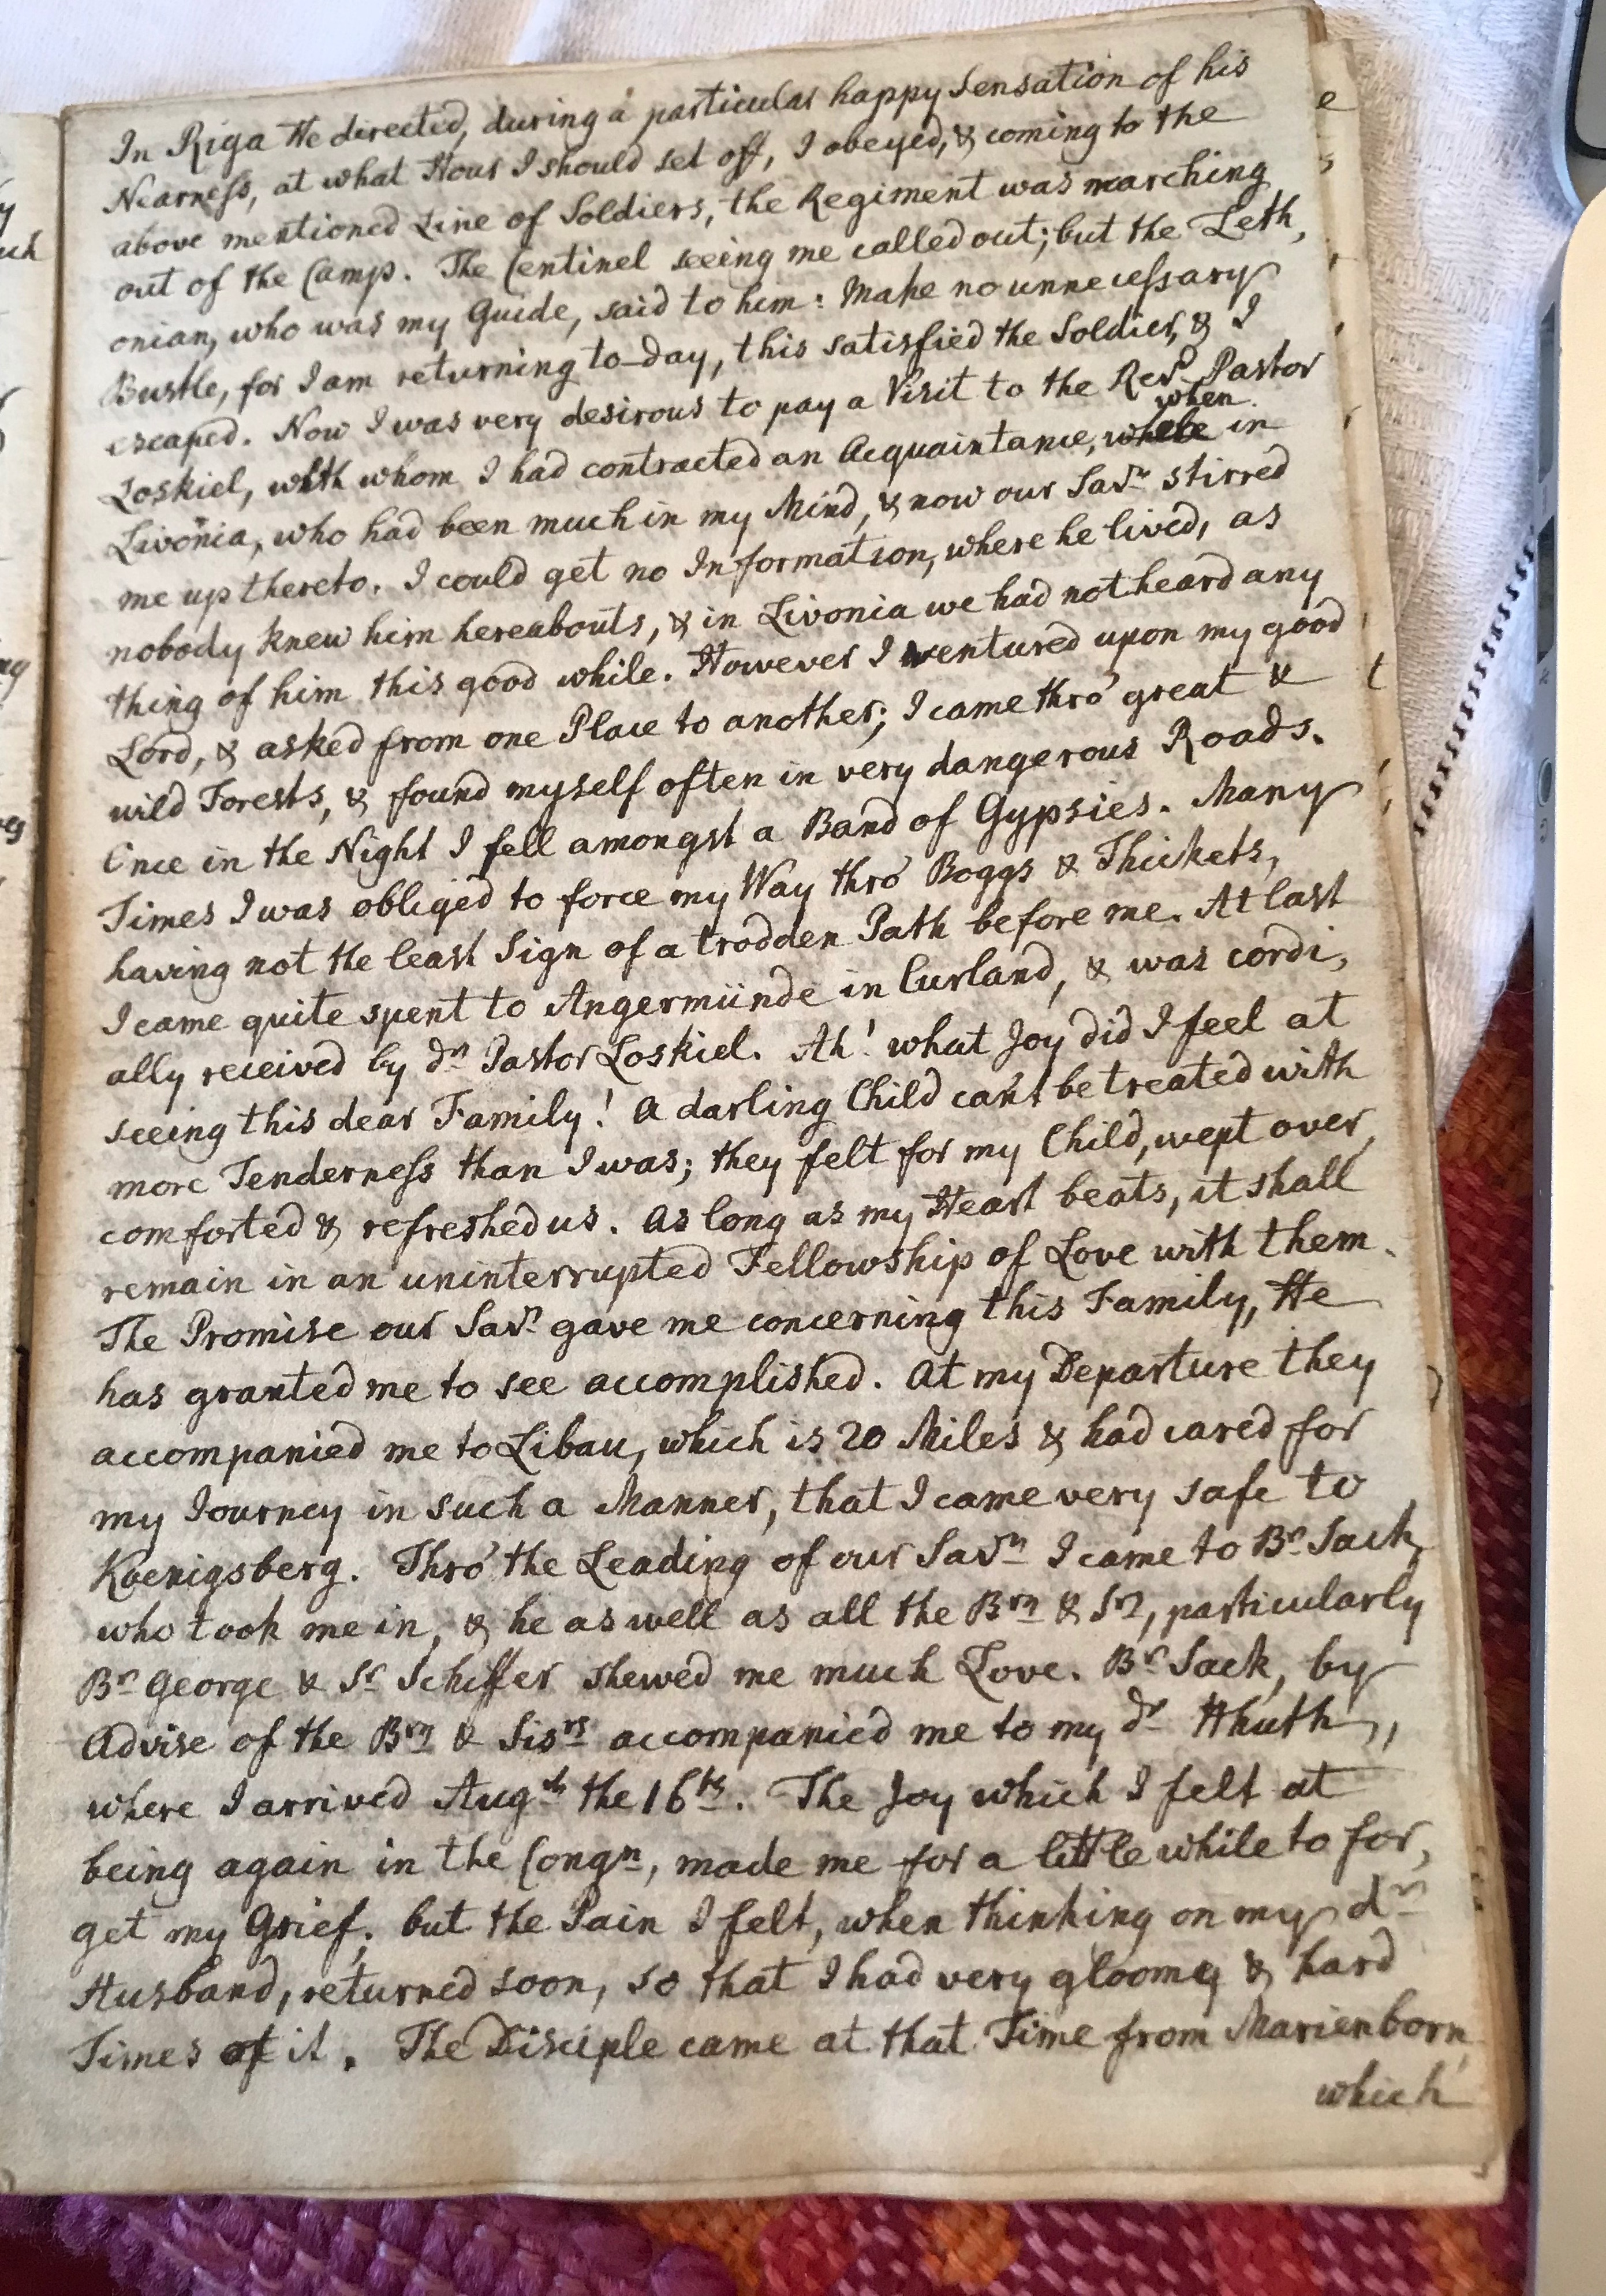 In Riga He directed, during a particular happy Sensation of his
Nearness, at what Hour I should set off, I obeyed, & coming to the
above mentioned Line of Soldiers, the Regiment was marching
out of the Camp. The Centinel seeing me called out; but the Leth,
onian, who was my Guide, said to him: Make no unnecessary
Bustle, for I am returning to-day, this satisfied the Soldier, & I
escaped. Now I was very desirous to pay a Visit to the Revd Pastor
Loskiel, with whom I had contracted an Acquaintance, when in
Livonia, who had been much in my Mind, & now our Savr stirred
me up thereto. I could get no Information, where he lived, as
nobody knew him hereabouts, & in Livonia we had not heard any
thing of him this good while. However I ventured upon my good
Lord, & asked from one Place to another; I came thro' great &
wild Forests, & found myself often in very dangerous Roads.
Once in the Night I fell amongst a Band of Gypsies. Many
Times I was obliged to force my Way thro' Boggs & Thickets,
having not the least Sign of a trodden Path before me. At last
I came quite spent to Angermünde in Curland, & was cordi,
ally received by dr Pastor Loskiel. Ah! what Joy did I feel at
seeing this dear Family! A darling Child can't be treated with
more Tenderness than I was; they felt for my Child, wept over,
comforted & refreshed us. As long as my Heart beats, it shall
remain in an uninterrupted Fellowship of Love with them.
The Promise our Savr gave me concerning this Family, He
has granted me to see accomplished. At my Departure they
accompanied me to Libau, which is 20 Miles & had cared for
my Journey in such a Manner, that I came very safe to
Koenigsberg. Thro' the Leading of our Savr I came to Br Sack,
who took me in, & he as well as all the Brn & Srs, particularly
Br George & Sr Scheffer shewed me much Love. Br Sack, by
Advise of the Brn & Sisrs accompanied me to my dr Hhuth,
where I arrived Augst the 16th. The Joy which I felt at
being again in the Congn, made me for a little while to for,
get my Grief; but the Pain I felt, when thinking on my dr
Husband, returned soon, so that I had very gloomy & hard
Times of it. The Disciple came at that Time from Marienborn,
which